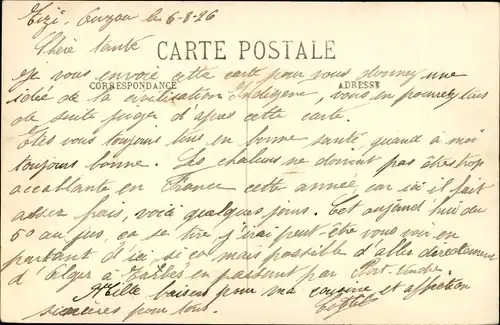 Tizi-Ouzou le 6-8-26
Chère tante
CARTE POSTALE
CORRESPONDANCE
ADRESSE
Je vous envoie cette carte pour vous donner une
idée de la civilisation Indigène, vous en pourrez
de suite juger d'après cette carte.
Êtes vous toujours tous en bonne santé, quand à moi
toujours bonne. Les chaleurs ne doivent pas être trop
accablante en France cette année, car ici il fait
assez frais, voilà quelques jours. Cet aujourd'hui du
5° au jus, ca se tire j'irai peut-être vous voir en
partant d'ici, si ca mais possible d'aller directement
d'Alger à en passant par Port-Vendre.
Mille baisers pour ma cousine et affection
sincères pour tous.